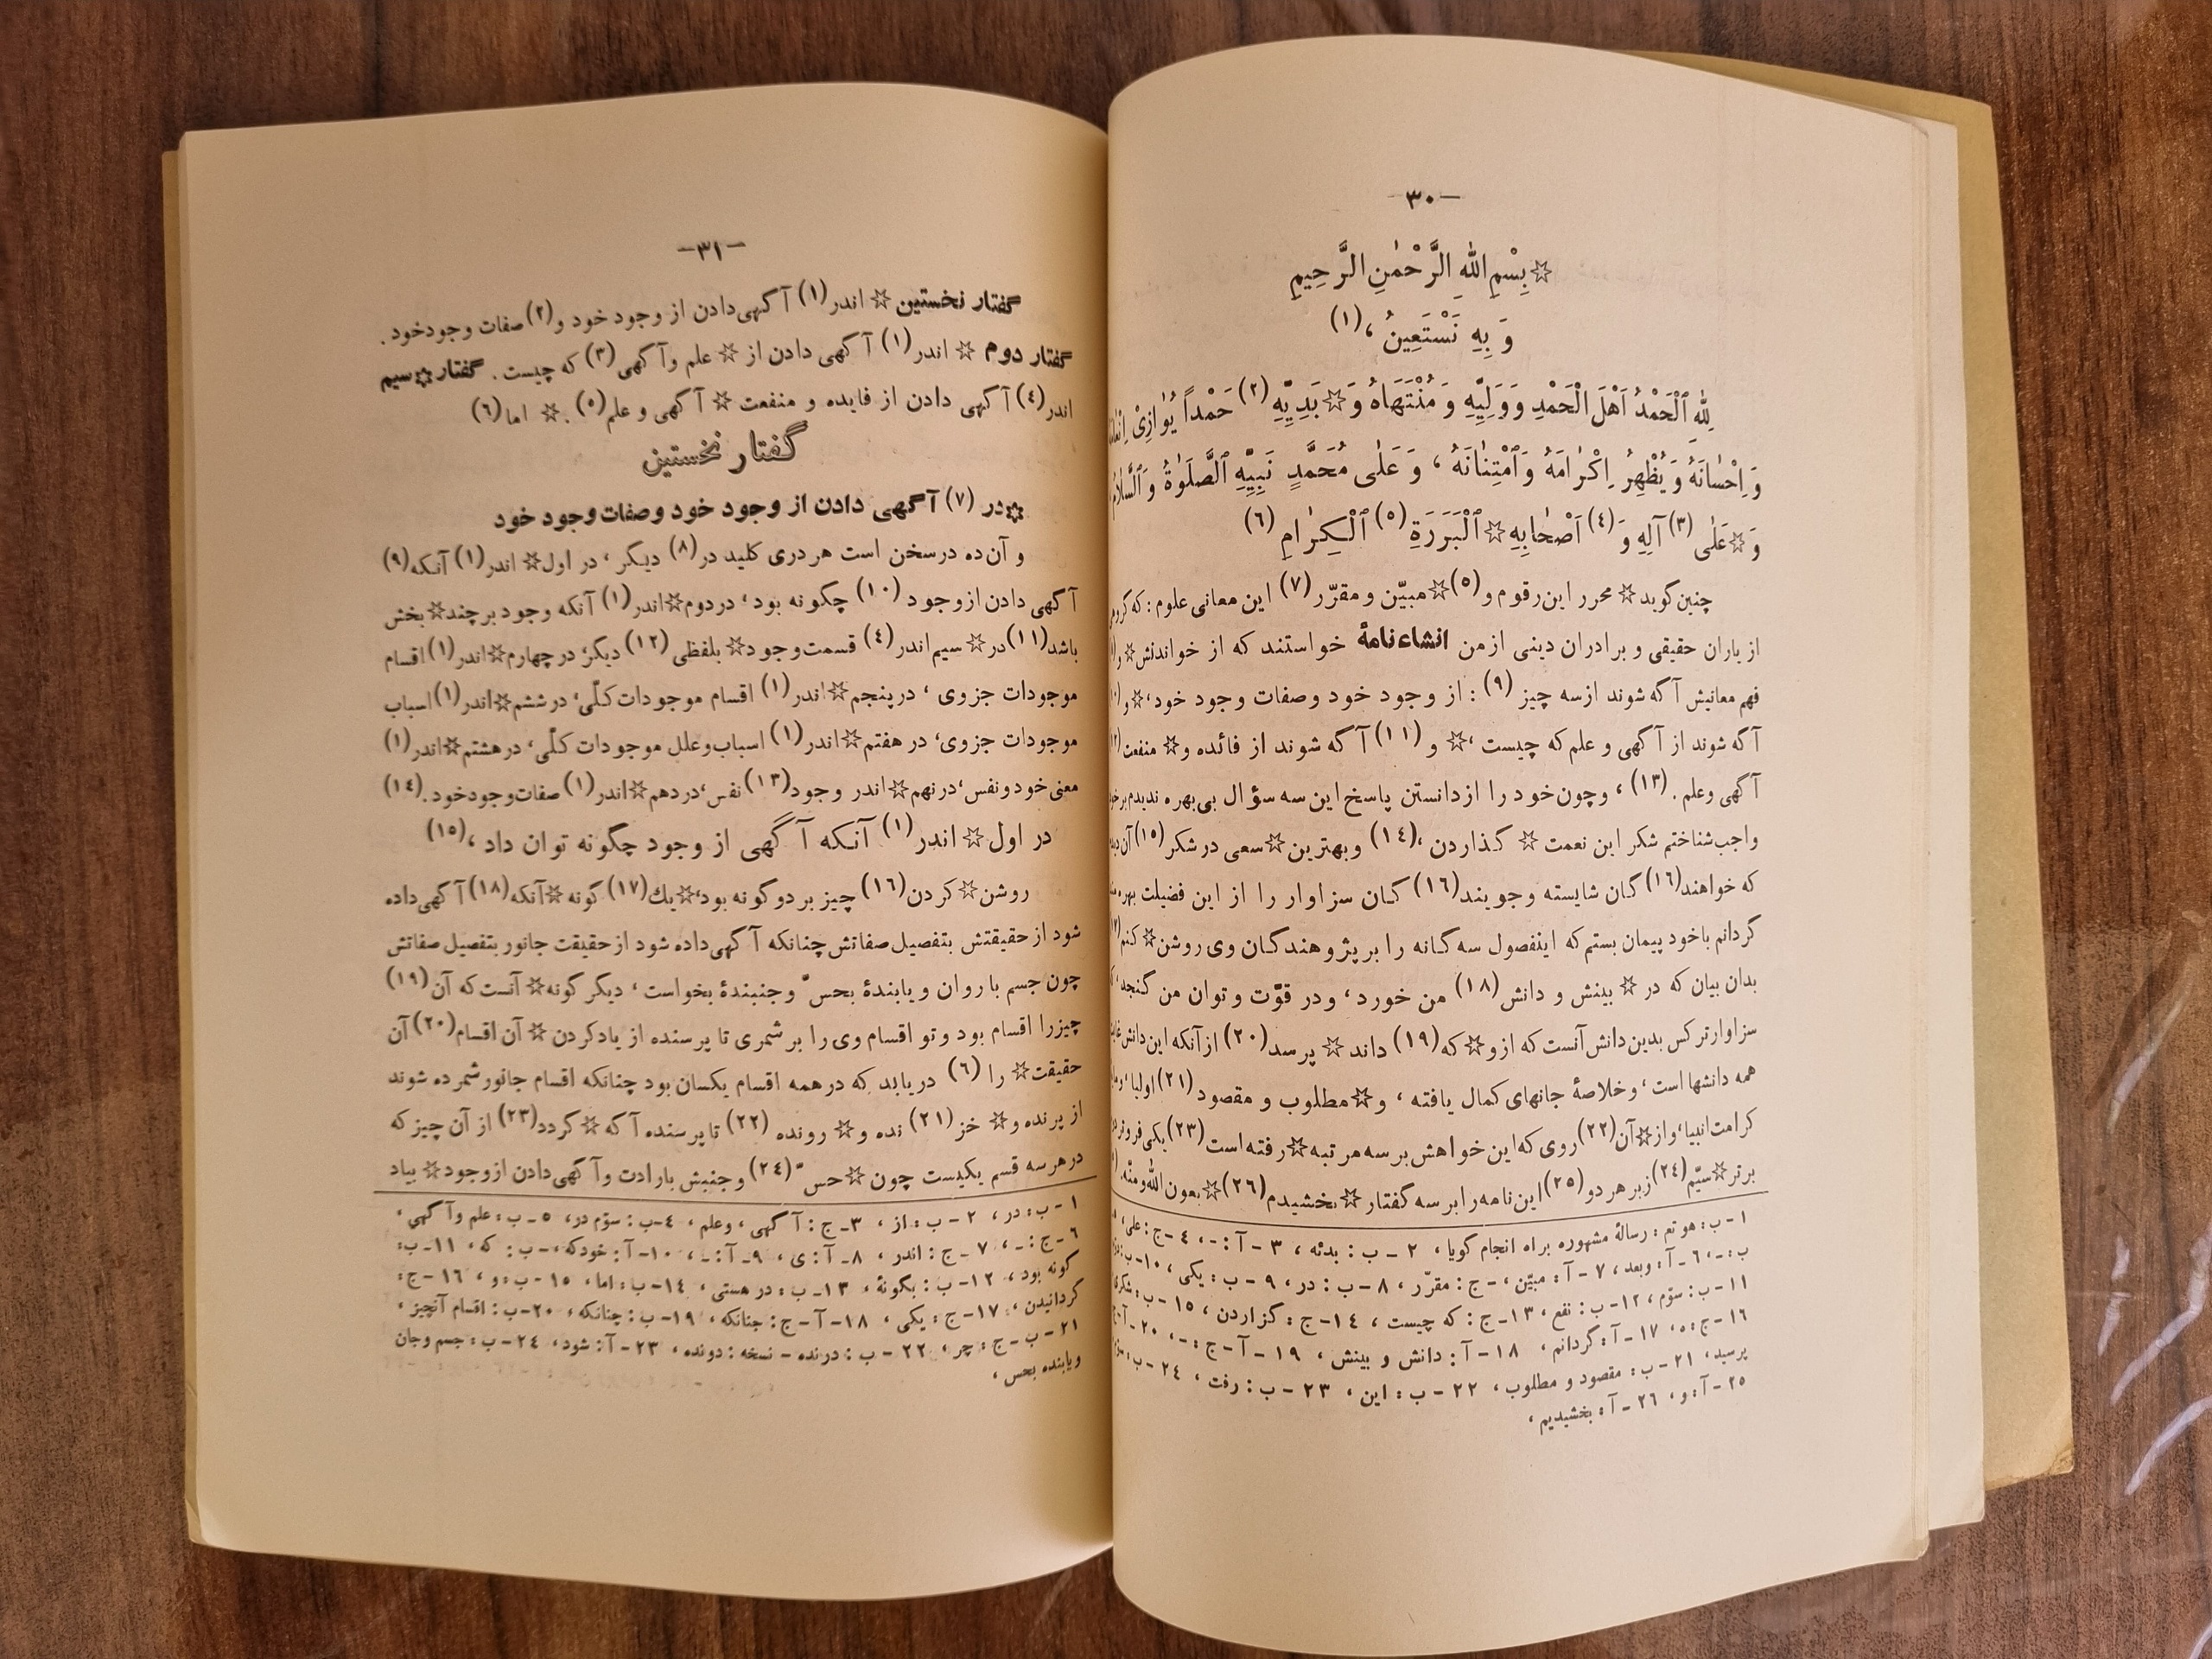 -٣٠-
☆بِسْمِ اللهِ الرَّحْمٰنِ الرَّحِيمِ
وَ بِهِ نَسْتَعِينُ ،(١)
لِلّٰهِ ٱلْحَمْدُ اَهْلَ الْحَمْدِ وَوَلِيِّهِ وَ مُنْتَهَاهُ وَ☆بَدِيِّهِ (٢) حَمْداً يُوٰازِىْ
وَ اِحْسٰانَهُ وَ يُظْهِرُ اِكْرٰامَهُ وَٱمْتِنٰانَهُ ، وَ عَلٰى مُحَمَّدٍ نَبِيِّهِ ٱلصَّلَوٰةُ وَ ٱلسَّلاٰمُ
وَ☆عَلٰى (٣) آلِهِ وَ (٤) اَصْحٰابِهِ☆ ٱلْبَرَرَةِ (٥) ٱلْكِرٰامِ (٦)
چنین گوید☆ محرر این رقوم و (٥)☆مبیّن و مقرّر (٧) این معانی علوم : که
از یاران حقیقی و برادران دینی از من انشاء نامهٔ خواستند که از خواندنش☆ و
فهم معانیش آگه شوند از سه چیز (٩) : از وجود خود وصفات وجود خود،☆و
آگه شوند از آگهی و علم که چیست ،☆ و (١١) آگه شوند از فائده و☆ منفعت
آگهی وعلم . (١٣) ، وچون خود را از دانستن پاسخ این سه سؤال بی بهره ندیدم
واجب شناختم شکر این نعمت ☆ گذاردن ،(١٤) و بهترین☆سعی در شکر (١٥) آن
که خواهند(١٦) گان شایسته وجویند(١٦) گان سزاوار را از این فضیلت
گردانم باخود پیمان بستم که اینفصول سه گانه را بر پژوهندگان وی روشن☆کنم
بدان بیان که در☆ بینش و دانش (١٨) من خورد ، ودر قوّت و توان من گنجد،
سزاوارتر کس بدین دانش آنست که ازو☆که (١٩) داند☆ پرسد (٢٠) از آنکه این دانش
همه دانشها است ، و خلاصهٔ جانهای کمال یافته ، و☆مطلوب و مقصود (٢١) اولیا ،
کرامت انبیا، و از☆آن (٢٢) روی که این خواهش بر سه مرتبه☆رفته است (٢٣) یکی
برتر☆سیّم (٢٤) زبر هر دو (٢٥) این نامه را بر سه گفتار☆ بخشیدم (٢٦)☆بعون الله ومنّه .
١ - ب : هو تم : رسالهٔ مشهوره براه انجام گویا ، ٢ - ب : بدئه ، ٣ - آ : - ، ٤ - ج : علی ،
ب : - ، ٦ - آ : وبعد ، ٧ - آ : مبیّن ، - ج : مقرّر ، ٨ - ب : در ، ٩ - ب : یکی ،
١١ - ب : سوّم ، ١٢ - ب : نفع ، ١٣ - ج : که چیست ، ١٤ - ج : گزاردن ، ١٥ - ب :
١٦ - ج : ه ، ١٧ - آ : گردانم ، ١٨ - آ : دانش و بینش ، ١٩ - آ - ج : - ، ٢٠ -
پرسید ، ٢١ - ب : مقصود و مطلوب ، ٢٢ - ب : این ، ٢٣ - ب : رفت ، ٢٤ - ب :
٢٥ - آ : و ، ٢٦ - آ : بخشیدیم ،
-٣١-
گفتار نخستین ☆ اندر (١) آگهی دادن از وجود خود و (٢) صفات وجود خود .
گفتار دوم ☆ اندر (١) آگهی دادن از ☆ علم وآگهی (٣) که چیست . گفتار☆سیم
اندر (٤) آگهی دادن از فایده و منفعت ☆ آگهی و علم (٥) . ☆ اما (٦)
گفتار نخستین
☆در (٧) آگهی دادن از وجود خود وصفات وجود خود
و آن ده در سخن است هر دری کلید در (٨) دیگر ، در اول☆ اندر (١) آنکه (٩)
آگهی دادن از وجود (١٠) چگونه بود ، در دوم☆اندر (١) آنکه وجود بر چند☆بخش
باشد (١١) در☆ سیم اندر (٤) قسمت وجود☆ بلفظی (١٢) دیگر، در چهارم☆اندر (١) اقسام
موجودات جزوی ، در پنجم☆اندر (١) اقسام موجودات کلّی ، در ششم☆اندر (١) اسباب
موجودات جزوی ، در هفتم☆اندر (١) اسباب و علل موجودات کلّی ، در هشتم☆اندر (١)
معنی خود و نفس ، در نهم☆اندر وجود (١٣) نفس ، در دهم☆اندر (١) صفات وجود خود . (١٤)
در اول☆ اندر (١) آنکه آگهی از وجود چگونه توان داد ، (١٥)
روشن☆کردن (١٦) چیز بر دو گونه بود،☆یك (١٧) گونه☆آنکه (١٨) آگهی داده
شود از حقیقتش بتفصیل صفاتش چنانکه آگهی داده شود از حقیقت جانور بتفصیل صفاتش
چون جسم با روان و یابندهٔ بحسّ و جنبندهٔ بخواست ، دیگر گونه☆آنست که آن (١٩)
چیز را اقسام بود و تو اقسام وی را بر شمری تا پرسنده از یاد کردن ☆ آن اقسام (٢٠) آن
حقیقت☆ را (٦) دریابد که در همه اقسام یکسان بود چنانکه اقسام جانور شمرده شوند
از پرنده و☆ خز (٢١) نده و☆ رونده (٢٢) تا پرسنده آگه☆گردد (٢٣) از آن چیز که
در هر سه قسم یکیست چون ☆حسّ (٢٤) و جنبش بارادت و آگهی دادن از وجود☆ بیاد
١ - ب : در ، ٢ - ب : از ، ٣ - ج : آگهی ، وعلم ، ٤ - ب : سوّم در ، ٥ - ب : علم وآگهی ،
٦ - ج : - ، ٧ - ج : اندر ، ٨ - آ : ی ، ٩ - آ : - ، ١٠ - آ : خود که ، - ب : که ، ١١ - ب :
گونه بود ، ١٢ - ب : بگونهٔ ، ١٣ - ب : در هستی ، ١٤ - ب : اما ، ١٥ - ب : و ، ١٦ - ج :
گردانیدن ، ١٧ - ج : یکی ، ١٨ - آ - ج : چنانکه ، ١٩ - ب : چنانکه ، ٢٠ - ب : اقسام آنچیز ،
٢١ - ب - ج : چر ، ٢٢ - ب : درنده - نسخه : دونده ، ٢٣ - آ : شود ، ٢٤ - ب : جسم وجان
ویابنده بحس ،